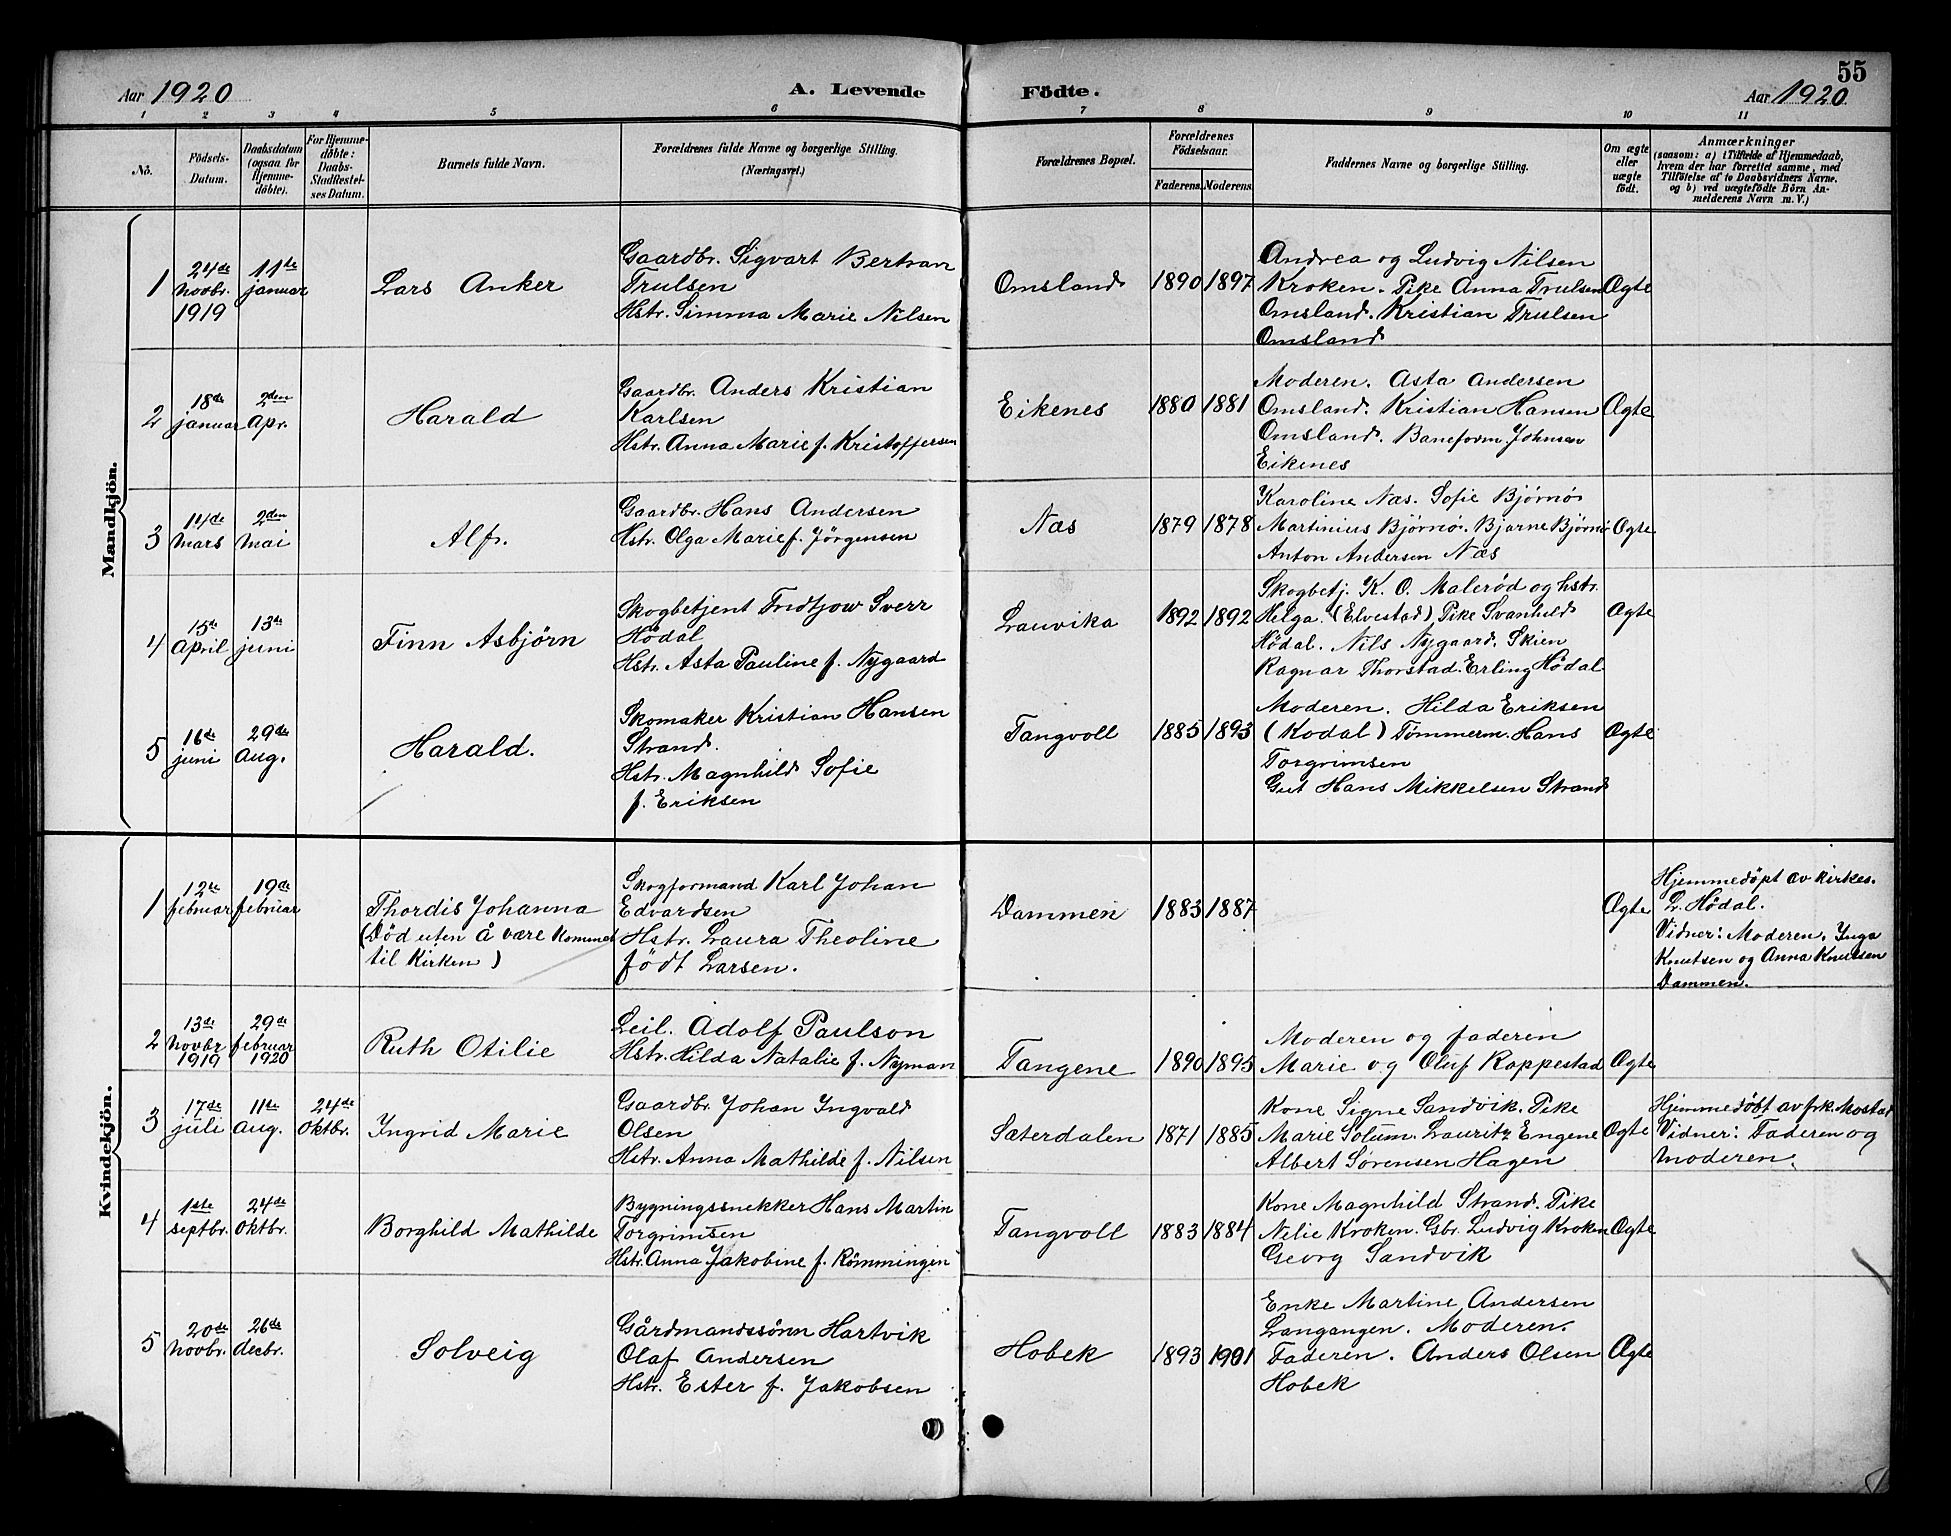 55
Aar 1920
A. Levende Födte.
Aar 1920
1 2 3 4 5 6 7 8 9 10 11
No.
Födsels-Datum.
Daabsdatum (ogsaa for Hjemme-döbte).
For Hjemme-döbte: Daabs-Stadfæstel-ses Datum.
Barnets fulde Navn.
Forældrenes fulde Navne og borgerlige Stilling.
(Næringsvei.)
Forældrenes Bopæl.
Forældrenes Födselsaar.
Faderens. Moderens.
Faddernes Navne og borgerlige Stilling.
Om ægte eller uægte födt.
Anmærkninger
(saasom: a) i Tilfælde af Hjemmedaab,
hvem der har forrettet samme, med
Tilföielse af to Daabsvidners Navne.
og b) ved uægtefödte Börn An-
melderens Navn m. V.)
Mandkjön.
1
24de Novbr. 1919
11te januar
Lars Anker
Gaardbr. Sigvart Bertran
Trulsen
Hstr. Simma Marie Nilsen
Omsland
1890 1897
Andrea og Ludvig Nilsen
Kroken. Pike Anna Trulsen
Omsland. Kristian Trulsen
Omsland
Ægte
2
18de januar
2den Apr.
Harald
Gaardbr. Anders Kristian
Karlsen
Hstr. Anna Marie f. Kristoffersen
Eikenes
1880 1881
Moderen. Asta Andersen
Omsland. Kristian Hansen
Omsland. Baneform. Johnsen
Eikenes
Ægte
3
14de Mars
2den Mai
Alf.
Gaardbr. Hans Andersen
Hstr. Olga Marie f. Jörgensen
Næs
1879 1878
Karoline Næs. Sofie Bjørnø
Martinius Bjørnø. Bjarne Bjørnø
Anton Andersen Næs
Ægte
4
15de April
13de juni
Finn Asbjörn
Skogbetjent Fridtjow Sverr
Hödal
Hstr. Asta Pauline f. Nygaard
Lauvika
1892 1892
Skogbetj. K. O. Malerød og hstr.
Helga. (Elvestad) Pike Svanhild
Hödal. Nils Nygaard. Skien
Ragnar Thorstad. Erling Hödal
Ægte
5
16de juni
29de Aug.
Harald.
Skomaker Kristian Hansen
Strand.
Hstr. Magnhild Sofie
f. Eriksen
Tangvoll
1885 1893
Moderen. Hilda Eriksen
(Kodal) Tømmerm. Hans
Torgrimsen
Gut Hans Mikkelsen Strand
Ægte
Kvindekjön.
1
12te februar
19de februar
Thordis Johanna
(Död uten å være kommet
til Kirken)
Skogformand Karl Johan
Edvardsen
Hstr. Laura Theoline
født Larsen.
Dammen
1883 1887
Ægte
Hjemmedöpt av Kirkes.
L. Hödal.
Vidner: Moderen, Inga
Knutsen og Anna Knutsen
Dammen.
2
13de Novbr 1919
29de februar 1920
Ruth Otilie
Leil. Adolf Paulson
Hstr. Hilda Natalie f. Nyman
Tangene
1890 1895
Moderen og faderen
Marie og Oluf Koppestad
Ægte
3
17de juli
11te Aug.
24de Oktbr.
Ingrid Marie
Gaardbr. Johan Ingvald
Olsen
Hstr. Anna Mathilde f. Nilsen
Sæterdalen
1871 1885
Kone Signe Sandvik. Pike
Marie Solum. Lauritz Engene
Albert Sørensen Hagen
Ægte
Hjemmedöbt av frk. Mostad
Vidner: Faderen og
Moderen.
4
1ste septbr.
24de Oktbr.
Borghild Mathilde
Bygningssnekker Hans Martin
Torgrimsen
Hstr. Anna Jakobine f. Römmingen
Tangvoll
1883 1884
Kone Magnhild Strand. Pike
Nelie Kroken. Gbr. Ludvig Kroken
Georg Sandvik
Ægte
5
20de Novbr.
26de decbr.
Solveig
Gårdmandssönn Hartvik
Olaf Andersen
Hstr. Ester f. Jakobsen
Hobek
1893 1901
Enke Martine Andersen
Langangen. Moderen.
Faderen. Anders Olsen
Hobek
Ægte